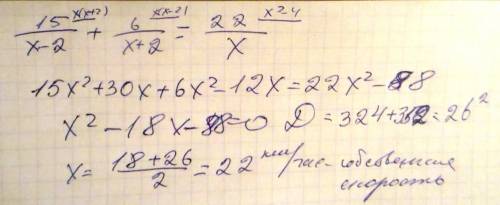 15 x(x+2) / x-2 + 6 x(x-2) / x+2 = 22 x²-4 / x
15x²+30x+6x²-12x=22x²-88
x²-18x-88=0 D=324+352=26²
x= 18+26 / 2 =22 км/час-собственная
скорость